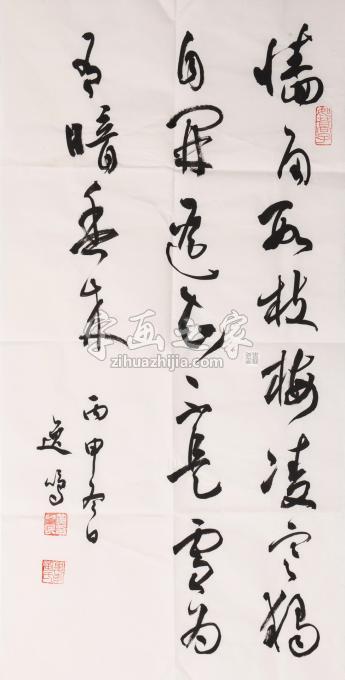 墙角数枝梅凌寒独
自开遥知不是雪为
有暗香来
丙申冬日
逸鸣
字画之家
zihuazhijia.com